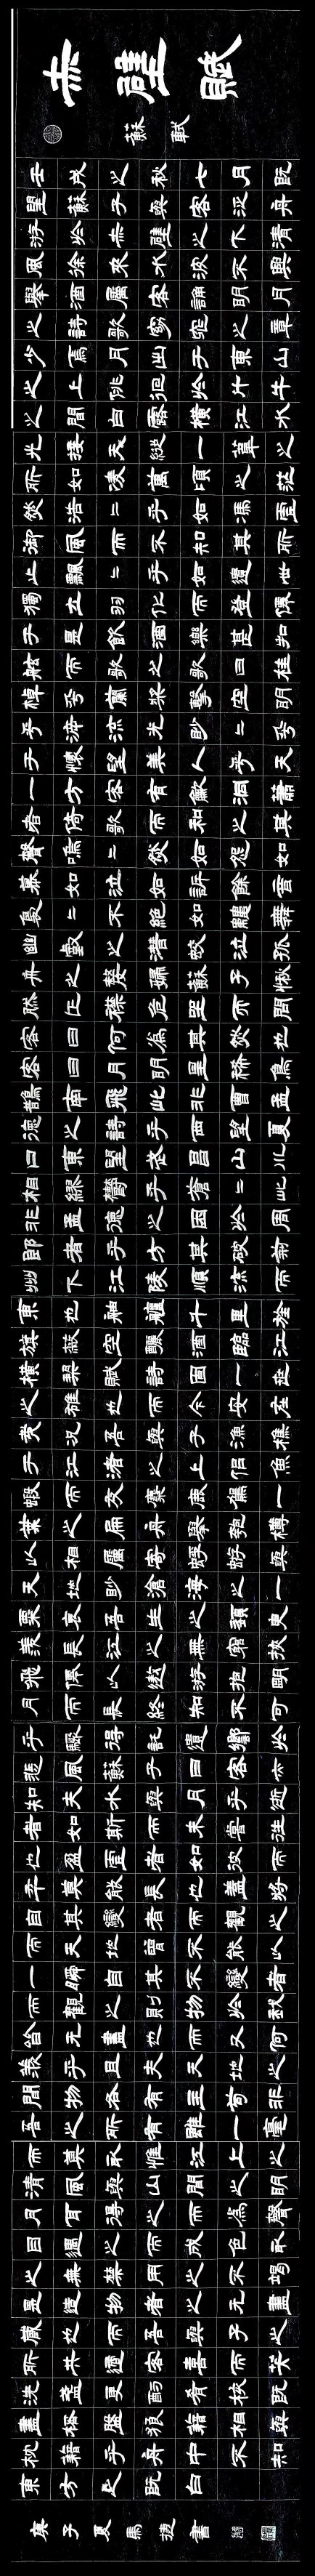 赤壁賦
蘇軾
壬戌之秋七月既
望蘇子與客泛舟
游於赤壁之下清
風徐來水波不興
舉酒屬客誦明月
之詩歌窈窕之章
少焉月出於東山
之上徘徊於斗牛
之間白露橫江水
光接天縱一葦之
所如凌萬頃之茫
然浩二乎如馮虛
御風而不知其所
止飄二乎如遺世
獨立羽化而登僊
于是飲酒樂甚扣
舷而歌之歌曰桂
棹兮蘭槳擊空明
兮泝流光眇二兮
予懷望美人兮天
一方客有龡洞簫
者倚歌而和之其
聲嗚二然如怨如
慕如泣如訴餘音
裊二不絕如縷舞
幽壑之潛蛟泣孤
舟之嫠婦蘇子愀
然正襟危坐而問
客曰何為其然也
客曰月明星稀烏
鵲南飛此非曹孟
德之詩乎西望夏
口東望武昌山川
相繆鬱乎蒼二此
非孟德之困於周
郎者乎方其破荊
州下江陵順流而
東也舳艫千里旌
旗蔽空釃酒臨江
橫槊賦詩固一世
之雄也而今安在
哉況吾與子漁樵
於江渚之上侶魚
蝦而友麋鹿駕一
葉之扁舟舉匏樽
以相屬寄蜉蝣與
天地眇滄海之一
粟哀吾生之須臾
羨長江之無窮挾
飛僊以遨游抱明
月而長終知不可
乎驟得託遺響於
悲風蘇子曰客亦
知夫水與月乎逝
者如斯而未嘗往
也盈虛者如彼而
卒莫消長也蓋將
自其變者而觀之
而天地曾不能以
一瞬自其不變者
而觀之則物於我
皆无盡也而又何
羨乎且夫天地之
間物各有主苟非
吾之所有雖一毫
而莫取惟江上之
清風與山間之明
月耳得之而為聲
目遇之而成色取
之無禁用之不竭
是造物者之无盡
藏也而吾與子之
所共適客喜而笑
洗盞更酌肴核既
盡杯盤狼藉相與
枕藉乎舟中不知
東方之既白
庚子夏馬捷書